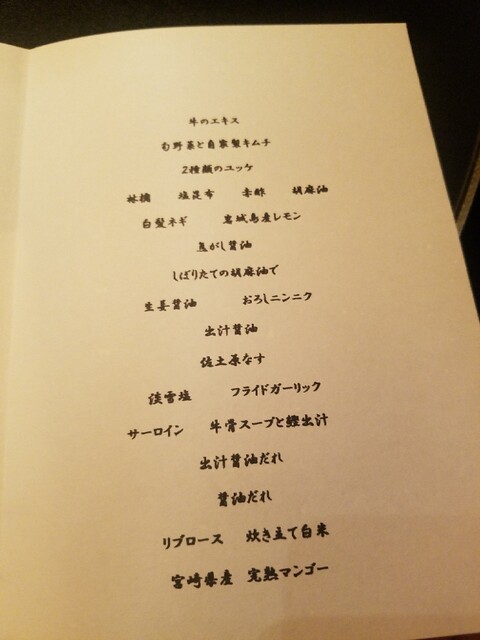 牛のエキス
旬野菜と自家製キムチ
2種類のユッケ
林檎 塩昆布 赤酢 胡麻油
白髪ネギ 嵩城島産レモン
焦がし醤油
しぼりたての胡麻油で
生姜醤油 おろしニンニク
出汁醤油
佐土原なす
淡雪塩 フライドガーリック
サーロイン 牛骨スープと鰹出汁
出汁醤油だれ
醤油だれ
リブロース 炊き立て白米
宮崎県産 完熟マンゴー